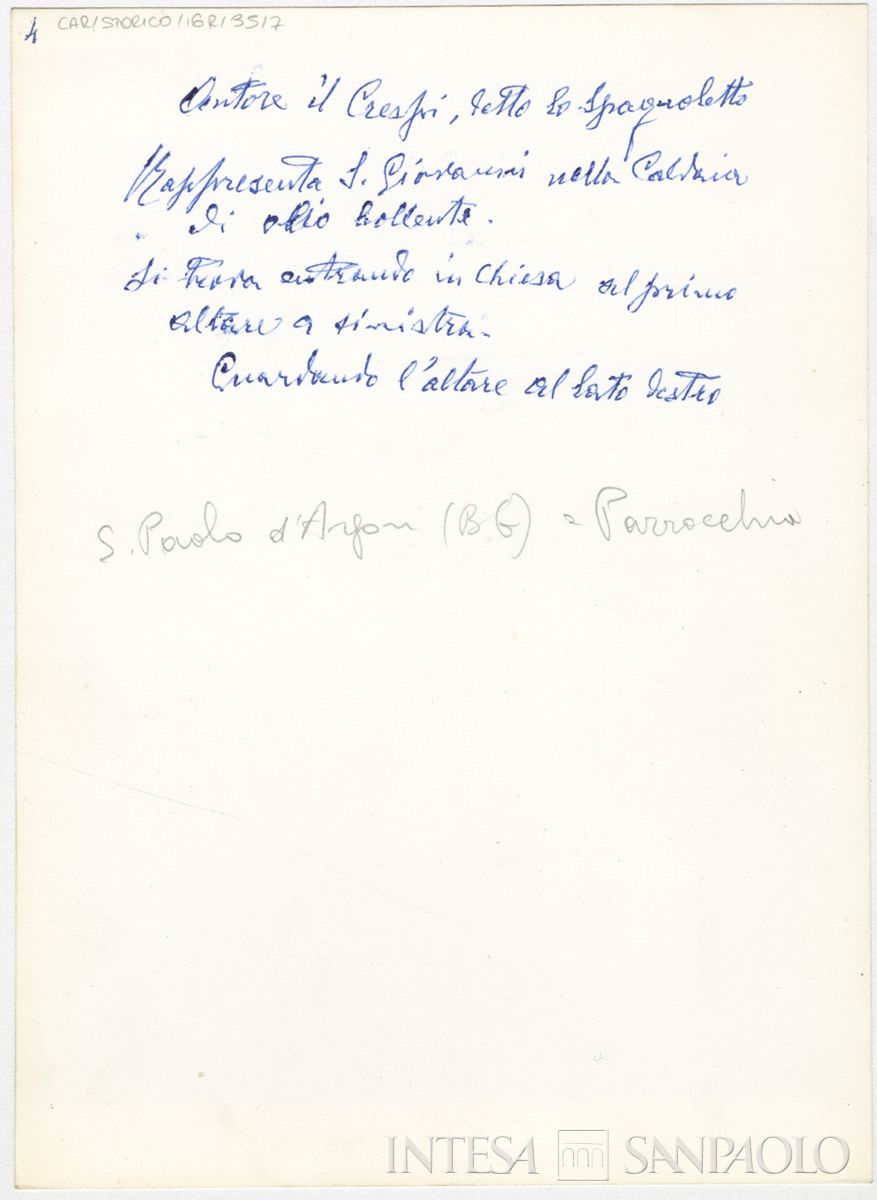 4 CAR/STORICO/16R/35/7
Autore il Crespi, detto lo Spagnoletto
Rappresenta S. Giovanni nella Caldaia
di olio bollente.
Si trova entrando in Chiesa al primo
altare a sinistra.
Guardando l'altare al lato destro
S. Paolo d'Argon (BG) = Parrocchia
INTESA SANPAOLO